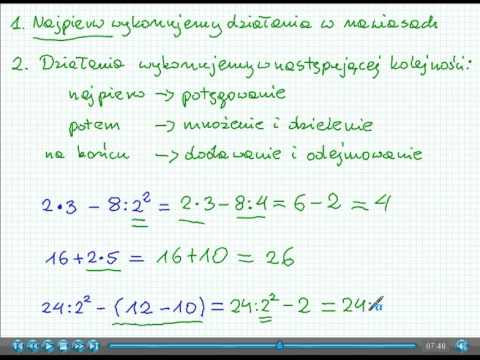 1. Najpierw wykonujemy działania w nawiasach
2. Działania wykonujemy w następującej kolejności:
najpierw → potęgowanie
potem → mnożenie i dzielenie
na końcu → dodawanie i odejmowanie
2·3 - 8:2² = 2·3 - 8:4 = 6 - 2 = 4
16 + 2·5 = 16 + 10 = 26
24:2² - (12 - 10) = 24:2² - 2 = 24:
07:40